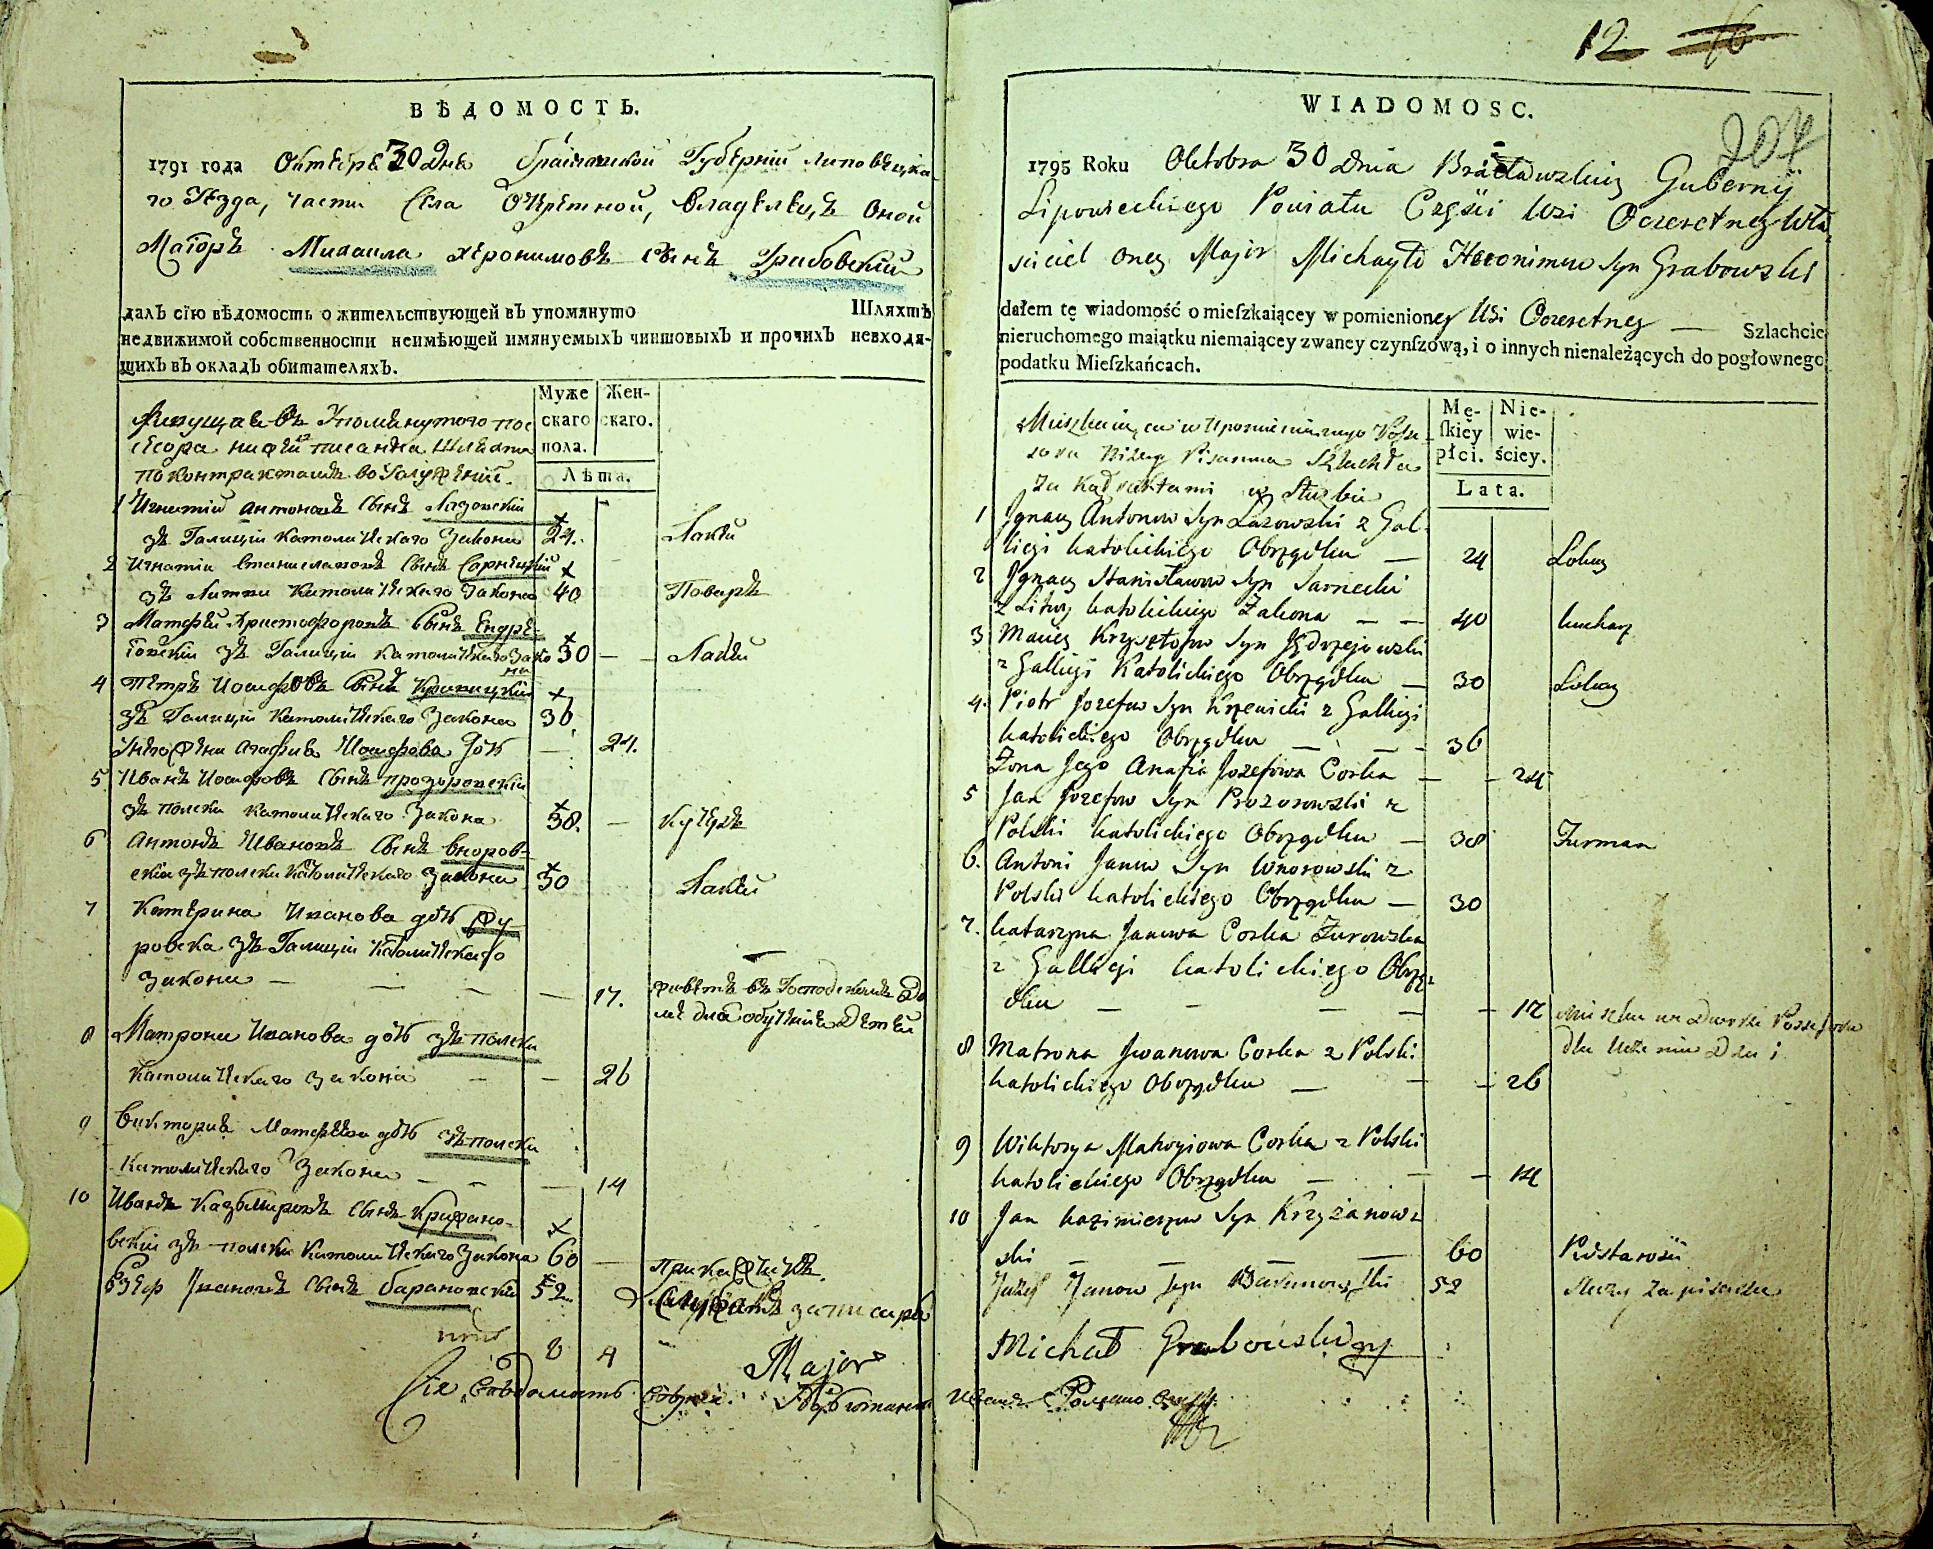 ВѢДОМОСТЬ.
1791 года Октебрѣ 30 Дня Браславской Губерніи Липовецка-
го Уѣзда, части Села Очеретной, Владѣлецъ Оной
Маіоръ Михаила Херонимовъ Сынъ Грабовскій
далъ сїю вѣдомость о жительствующей въ упомянуто Шляхтѣ
недвижимой собственности неимѣющей имянуемыхъ чиншовыхъ и прочихъ невходя-
щихъ въ окладъ обитателяхъ.
Муже Жен-
скаго скаго.
пола.
Лѣта.
Живущая въ Упомянутого пос
сесора нижей писанна Шляхта
по контрактамъ во Услуженіи
1 Игнатій Антоновъ Сынъ Лазовскій
зъ Галиціи Католическаго Закона 24. Лакѣй
2 Игнатій Станиславовъ Сынъ Сарнецкій
зъ Литви Католическаго Закона 40 Поваръ
3 Матфѣй Христофоровъ Сынъ Ендрѣ-
ёовскій зъ Галиціи Католическаго Зако 30 — — Лакѣй
на
4 Петръ Иосифовъ Сынъ Кржепицкій
зъ Галиціи Католическаго Закона 36
У него жена Агафия Иосифова дочь — 24.
5 Иванъ Иосифовъ Сынъ Прозоровскій
зъ полски католическаго Закона 38. — Кучеръ
6 Антонъ Ивановъ Сынъ Вноров-
скій зъ полски Католическаго Закона 30 Лакѣй
7 Катерина Иванова дочь Жу
ровска зъ Галиціи Католическаго
закона — — — — 17. живетъ въ Господскомъ до
мѣ для обученія Детей
8 Матрона Иванова дочь зъ полски
Католическаго закона — — 26
9 Викторія Матфѣева дочь зъ полски
Католическаго Закона — — — 14
10 Иванъ Казимировъ Сынъ Крижано-
вскій зъ полски Католическаго Закона 60 — прикащикъ.
Ѳзеф Ивановъ Сынъ Барановскій 52
8 4 Major
Сія
12 16
204
WIADOMOSC.
1795 Roku Oktobra 30 Dnia Bracławskiey Gubernij
Lipowieckiego Powiatu Części Wsi Oczeretney Wła-
sciciel oney Major Michayło Heronimow Syn Grabowski
dałem tę wiadomość o mieſzkaiącey w pomienioney Wsi Oczeretney — Szlachcie
nieruchomego maiątku niemaiącey zwaney czynſzową, i o innych nienależących do pogłownego
podatku Mieſzkańcach.
Mę- Nie-
ſkiey wie-
płci. ściey.
Lata.
Mieszkaiąca w Upomienionego Posse-
sora Niżey Pisanna Szlachta
Za Kontraktami w służbie
1 Ignacy Antonow Syn Lazowski z Gal-
licji katolickiego Obrządku — 24 Lokay
2 Ignacy Stanisławow Syn Sarnecki
z Litwy katolickiego Zakona — — 40 kucharz
3 Maciey Krzysztofow Syn Jędrzejowski
z Gallicji Katolickiego Obrządku — 30 Lokay
4. Piotr Jozefow Syn Krzepicki z Gallicji
katolickiego Obrządku — — - 36
Żona Jego Anafia Jozefowa Corka — - 24
5 Jan Jozefow Syn Prozorowski z
Polski katolickiego Obrządku — 38 Furman
6. Antoni Janow Syn Wnorowski z
Polski katolickiego Obrządku — 30
7. katarzyna Janowa Corka Żurowska
z Gallicji katolickiego Obrzą-
dku — — — — - 17 mieszka we Dworze Possesora
dla Uczenia Dzieci
8 Matrona Iwanowa Corka z Polski
katolickiego Obrządku — — - 26
9 Wiktorya Mateyiowa Corka z Polski
katolickiego Obrządku — — - 14
10 Jan kazimierzow Syn Krzyżanow-
ski — — — — 60 Podstarosci
Jozef Janow Syn Baranowski 52 Służy za pisarza
Michał Grabowski